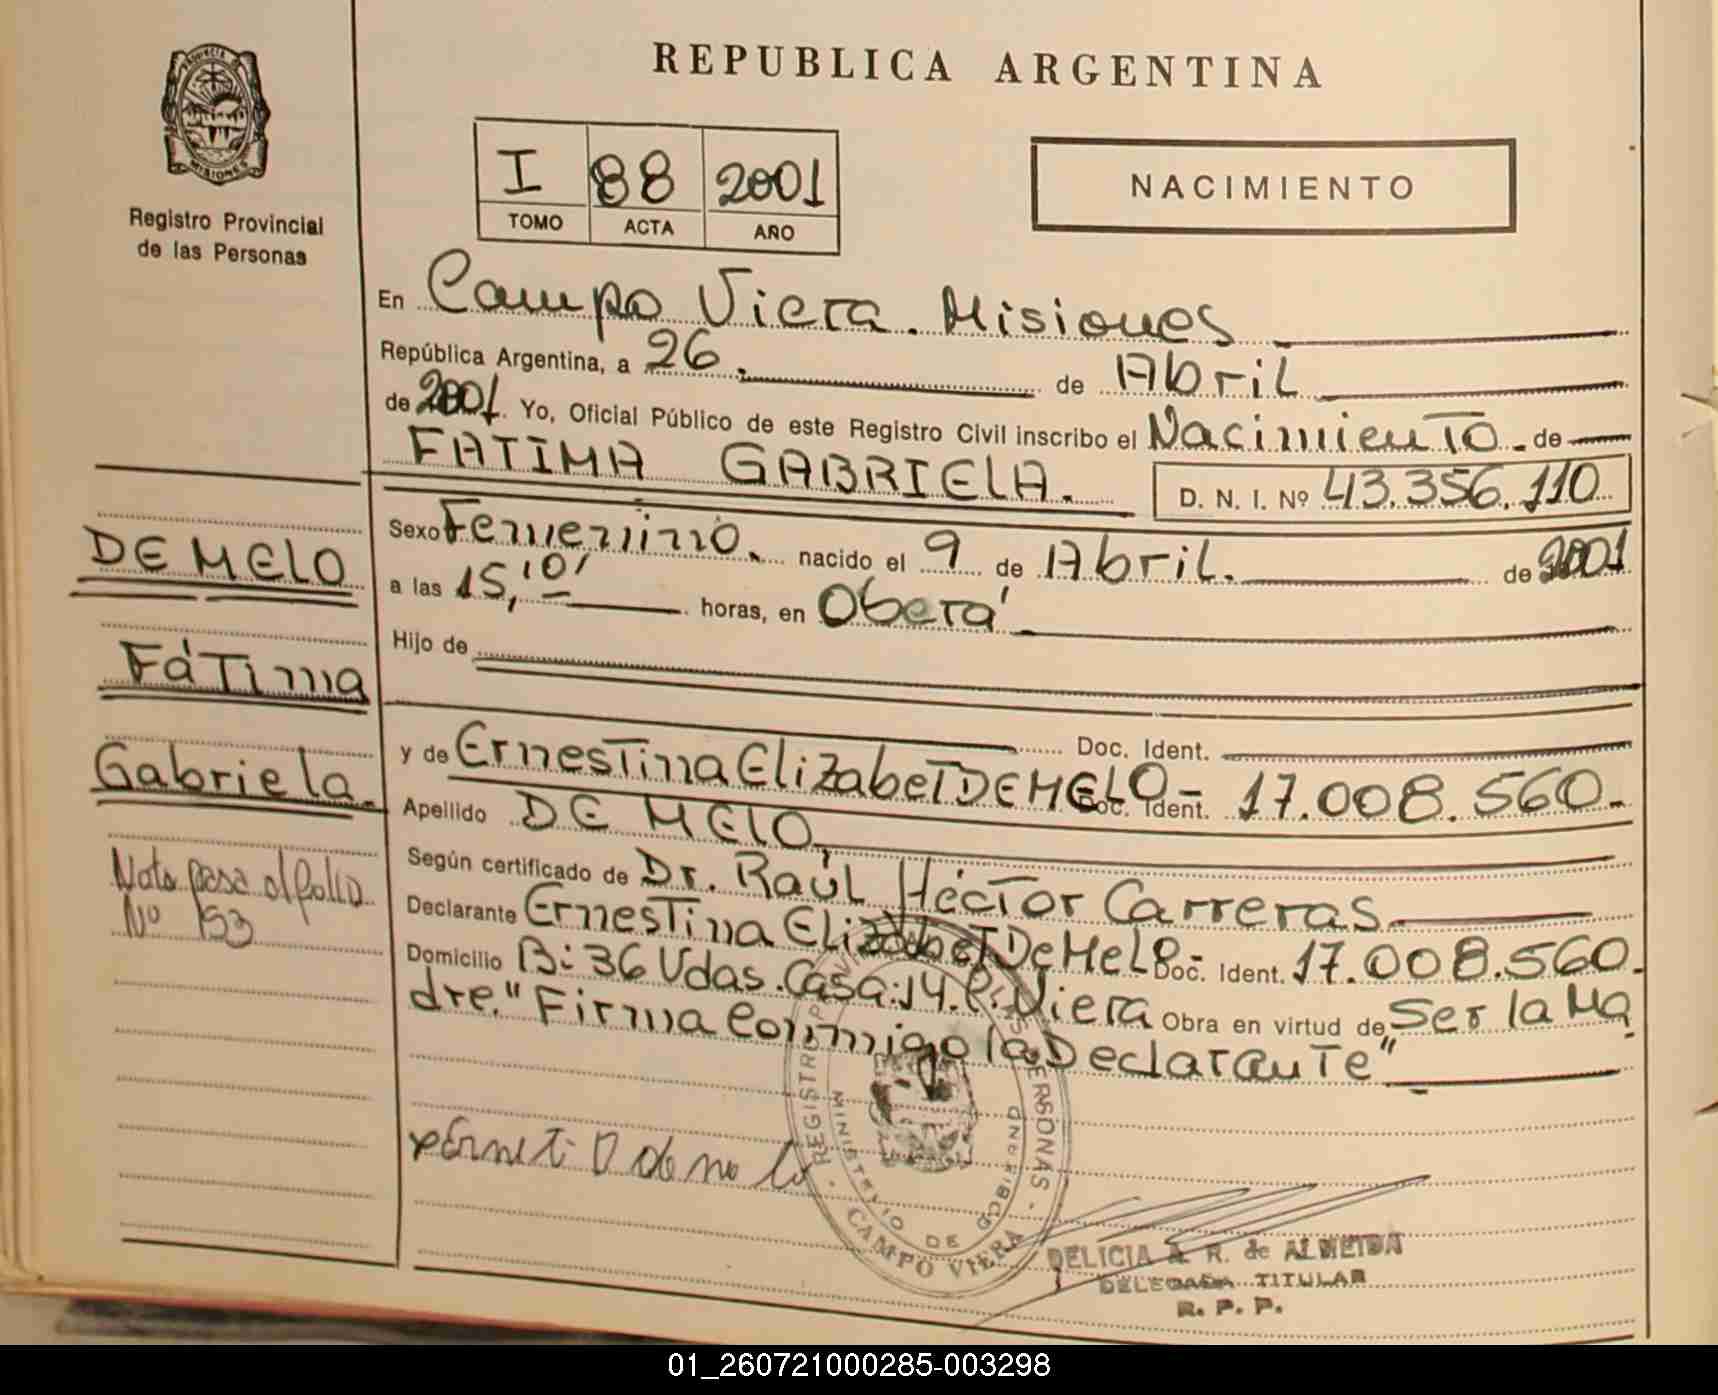 REPUBLICA ARGENTINA
PROVINCIA DE
MISIONES
Registro Provincial
de las Personas
I 88 2001
TOMO ACTA AÑO
NACIMIENTO
En Campo Viera. Misiones
República Argentina, a 26 de Abril
de 2001. Yo, Oficial Público de este Registro Civil inscribo el Nacimiento de
FATIMA GABRIELA. D. N. I. Nº 43.356.110
Sexo Femenino. nacido el 9 de Abril. de 2001
a las 15,10' horas, en Oberá
Hijo de
Doc. Ident.
y de Ernestina Elizabet DE MELO - Doc. Ident. 17.008.560.
Apellido DE MELO,
Según certificado de Dr. Raúl Héctor Carreras
Declarante Ernestina Elizabet De Melo - Doc. Ident. 17.008.560.
Domicilio B: 36 Vdas. Casa: 14. C. Viera Obra en virtud de Ser la Ma
dre. "Firma Conmigo la Declarante"
DE MELO
Fátima
Gabriela.
Nota pasa al folio
Nº 193
REGISTRO PERSONAS
MINISTERIO DE
CAMPO VIERA
DELICIA A. R. de ALMEIDA
DELEGADA TITULAR
R. P. P.
01_260721000285-003298